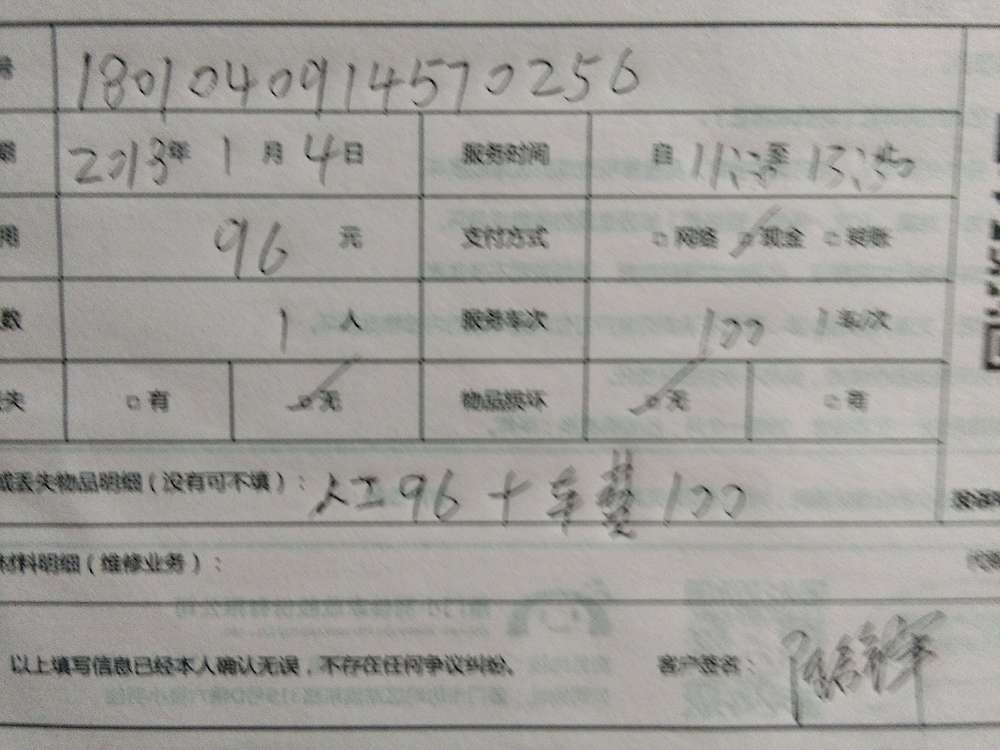 号 1801040914570256
期 2013年 1 月 4 日 服务时间 自 至
用 96 元 支付方式 □ 网络 □ 现金 □ 转账
数 1 人 服务车次 100 1 车/次
失 □ 有 □ 无 物品损坏 □ 无 □ 有
或丢失物品明细（没有可不填）： 人工96 + 车费 100
材料明细（维修业务）：
以上填写信息已经本人确认无误，不存在任何争议纠纷。 客户签名：